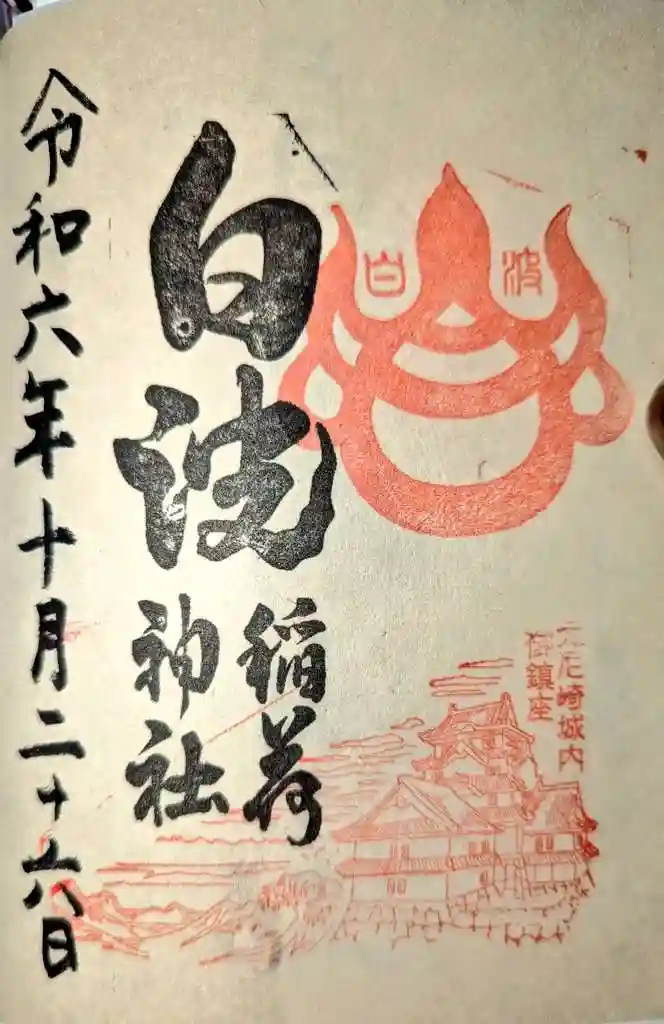 白波
元尼崎城内
御鎮座
白波
稲荷
神社
令和六年十月二十六日